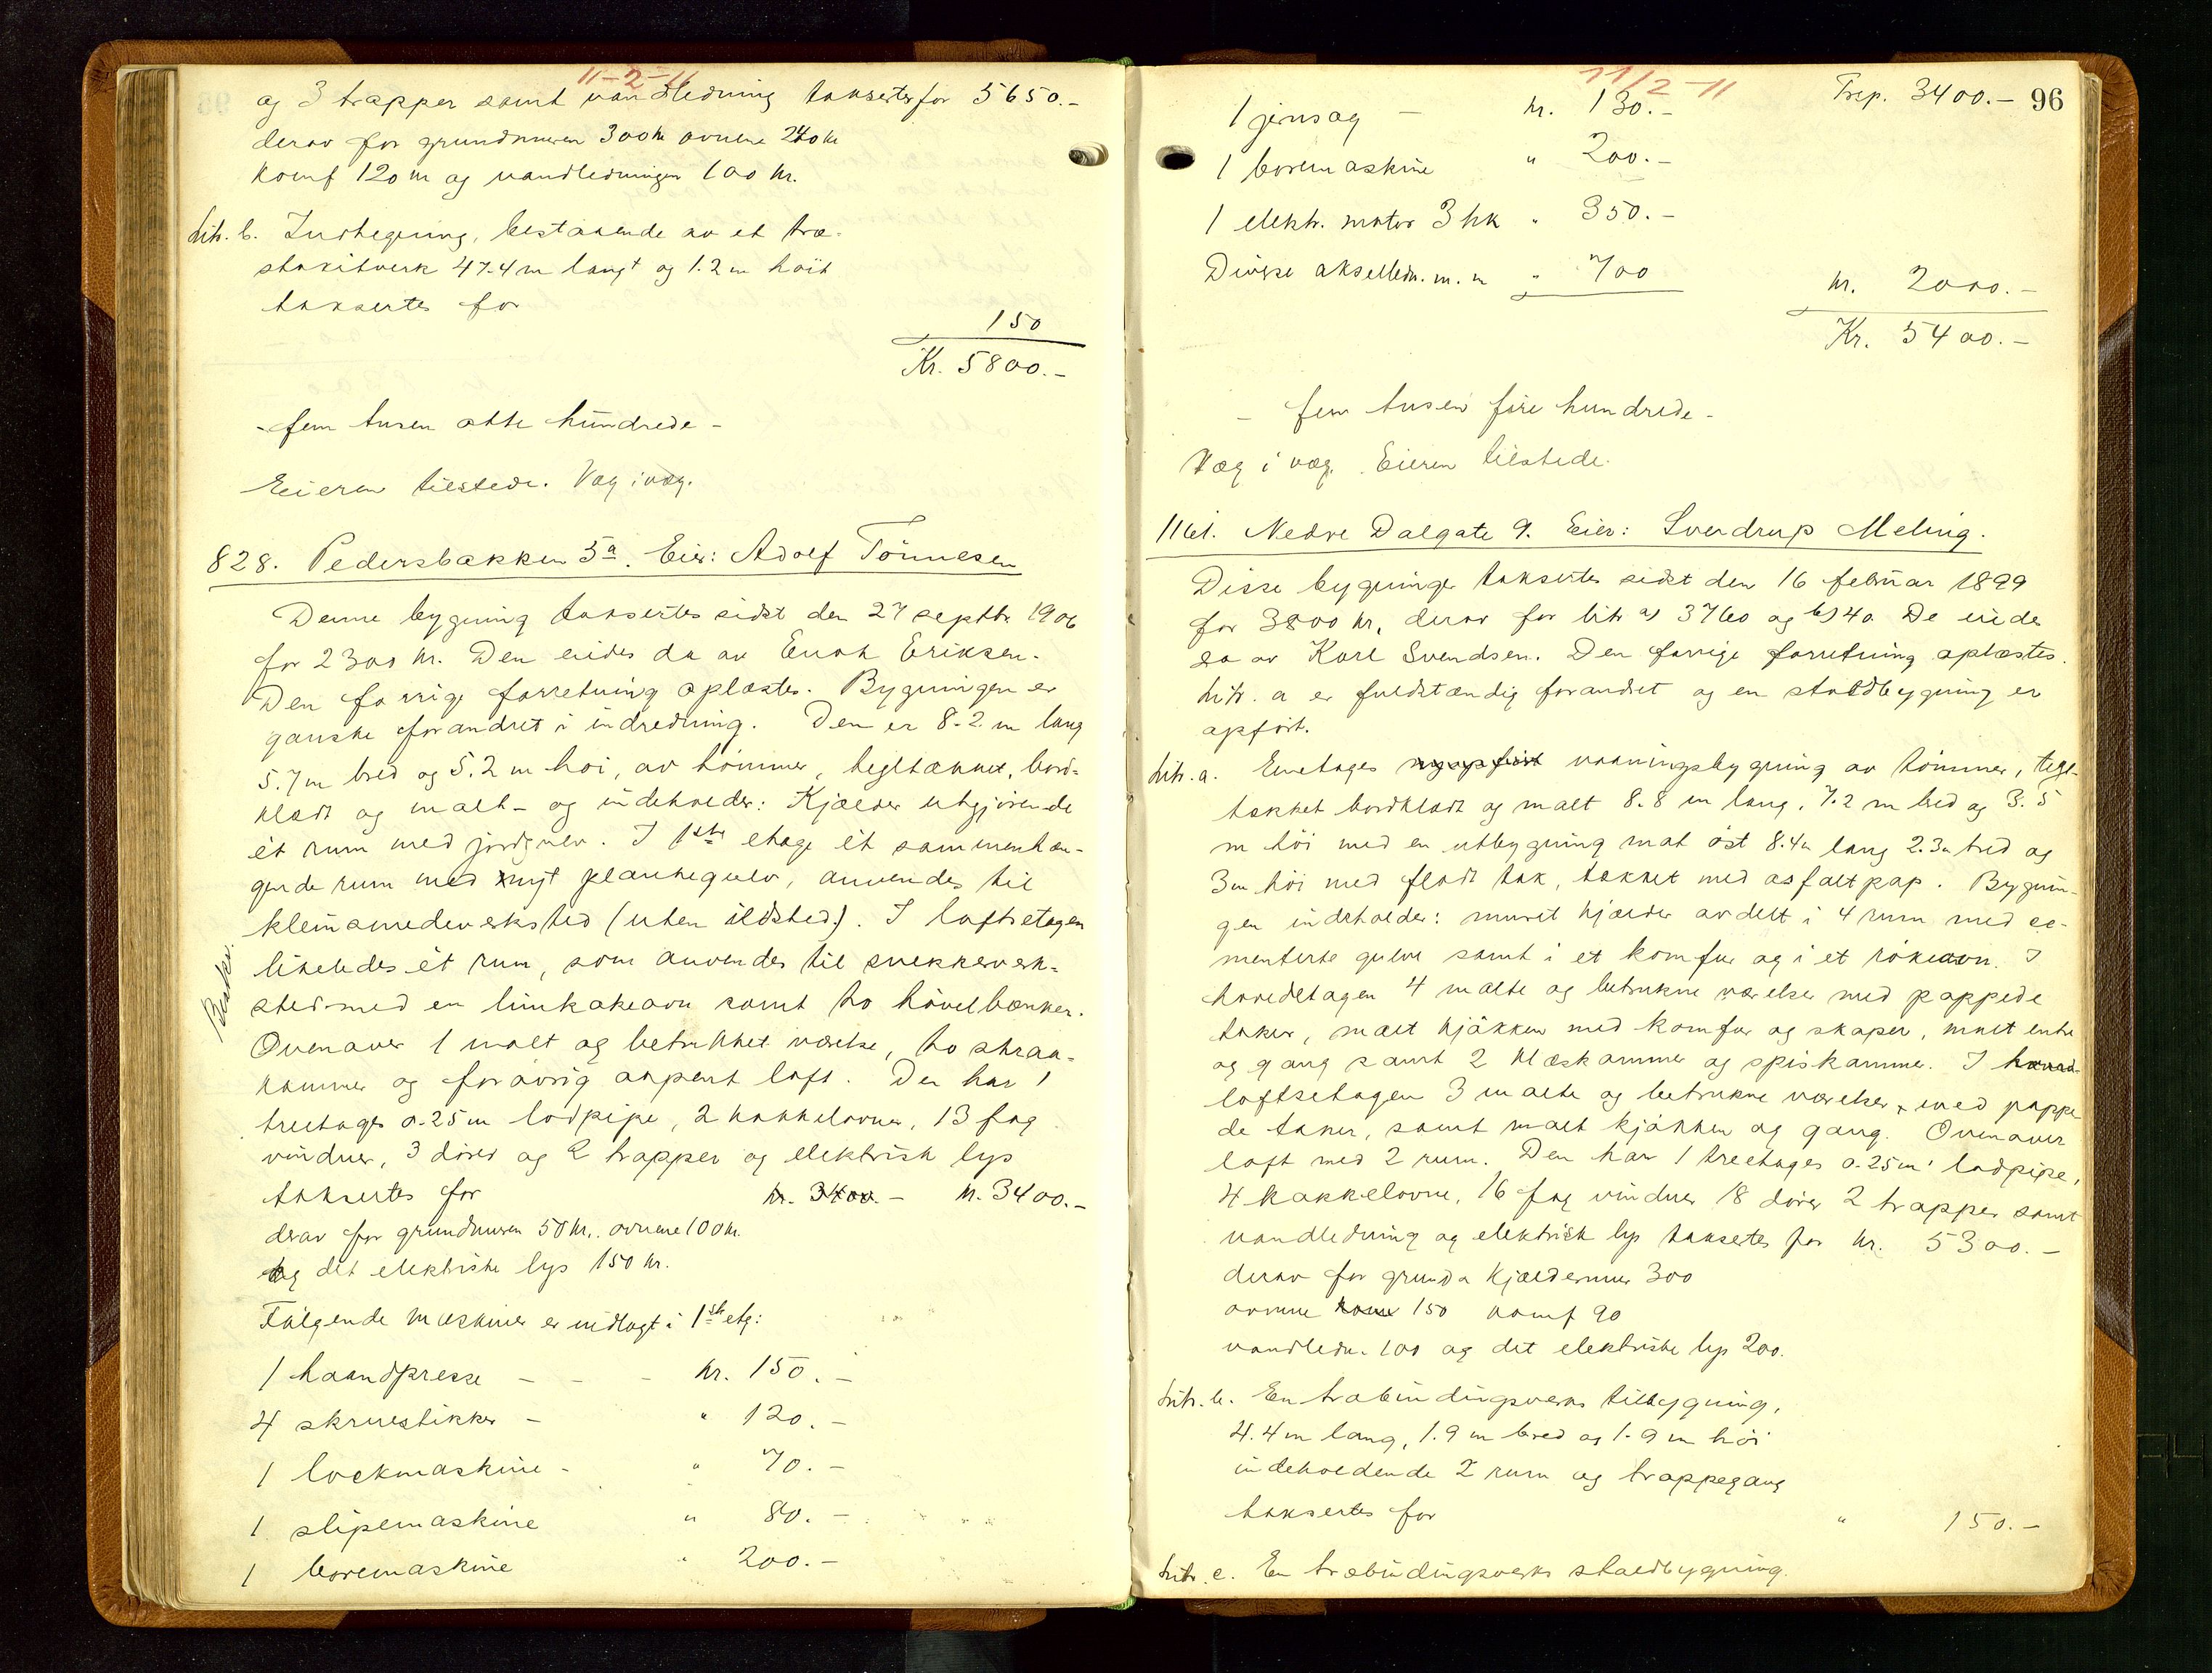 11-2-11
og 3 trapper samt vandledning taksertes for 5650.-
derav for grundmuren 300 kr ovnene 240 kr
komf 120 kr og vandledningen 100 kr.
Litr. b. Indhegning, bestaaende av et træ-
stakitverk 47.4 m langt og 1.2 m høit
taksertes for
150
Kr. 5800.-
- fem tusen otte hundrede -
Eieren tilstede. Væg i væg.
828. Pedersbakken 5a. Eier: Adolf Tönnesen
Denne bygning taksertes sidst den 27 septbr. 1906
for 2300 kr. Den eiedes da av Enok Eriksen.
Den forrige forretning oplæstes. Bygningen er
ganske forandret i indredning. Den er 8.2 m lang
5.7 m bred og 5.2 m høi, av tømmer, tegltækket, bord-
klædt og malt - og indeholder: Kjælder utgjørende
ét rum med jordgulv. I 1ste etage ét sammenhæn-
gende rum med nyt plankegulv, anvendes til
kleinsmedverksted (uten ildsted). I loftsetagen
likeledes ét rum, som anvendes til snekkerverk-
sted med en limkakeovn samt to høvelbænker.
Ovenover 1 malt og betrukket værelse, to skraa-
kammer og forøvrig aapent loft. Den har 1
treetages 0.25 m lodpipe, 2 kakkelovner, 13 fag
vinduer, 3 dører og 2 trapper og elektrisk lys
taksertes for kr. 3400.- kr. 3400.-
derav for grundmuren 50 kr. ovnene 100 kr.
og det elektriske lys 150 kr.
Følgende maskiner er indlagt i 1ste etg:
1 haandpresse - - - kr. 150.-
4 skruestikker - " 120.-
1 lockmaskine - " 70.-
1 slipemaskine " 80.-
1 boremaskine " 200.-
11/2-11
Trsp. 3400.- 96
1 jernsag - kr. 130.-
1 boremaskine " 200.-
1 elektr. motor 3 hk " 350.-
Diverse akselledn. m. m " 700
kr. 2000.-
Kr. 5400.-
- fem tusen fire hundrede -
Væg i væg. Eieren tilstede.
1161. Nedre Dalgate 9. Eier: Sverdrup Meling.
Disse bygninger taksertes sidst den 16 februar 1899
for 3800 kr, derav for litr a) 3760 og b) 40. De eiedes
da av Karl Svendsen. Den forrige forretning oplæstes.
Litr. a er fuldstændig forandret og en staldbygning er
opført.
Litr. a. Enetages nyopført vaaningsbygning av tømmer, tegl-
tækket bordklædt og malt 8.8 m lang, 7.2 m bred og 3.5
m høi med en utbygning mot øst 8.4 m lang 2.3 m bred og
3 m høi med fladt tak, tækket med asfaltpap. Bygnin-
gen indeholder: muret kjælder avdelt i 4 rum med ce-
menterte gulve samt i et komfur og i et røkeovn. I
hovedetagen 4 malte og betrukne værelser med pappede
taker, malt kjøkken med komfur og skaper, malt entre
og gang samt 2 klæskammer og spiskammer. I hoved-
loftsetagen 3 malte og betrukne værelser, med pappe-
de taker, samt malt kjøkken og gang. Ovenover
loft med 2 rum. Den har 1 treetages 0.25 m lodpipe,
4 kakkelovne, 16 fag vinduer 18 dører 2 trapper samt
vandledning og elektrisk lys taksertes for kr. 5300.-
derav for grund & kjældermur 300
ovnene komf 150 komf 90
vandledn. 100 og det elektriske lys 200.
Litr. b. En træbindingsverks tilbygning,
4.4 m lang, 1.9 m bred og 1.9 m høi
indeholdende 2 rum og trappegang
taksertes for " 150.-
Litr. c. En træbindingsverks staldbygning.